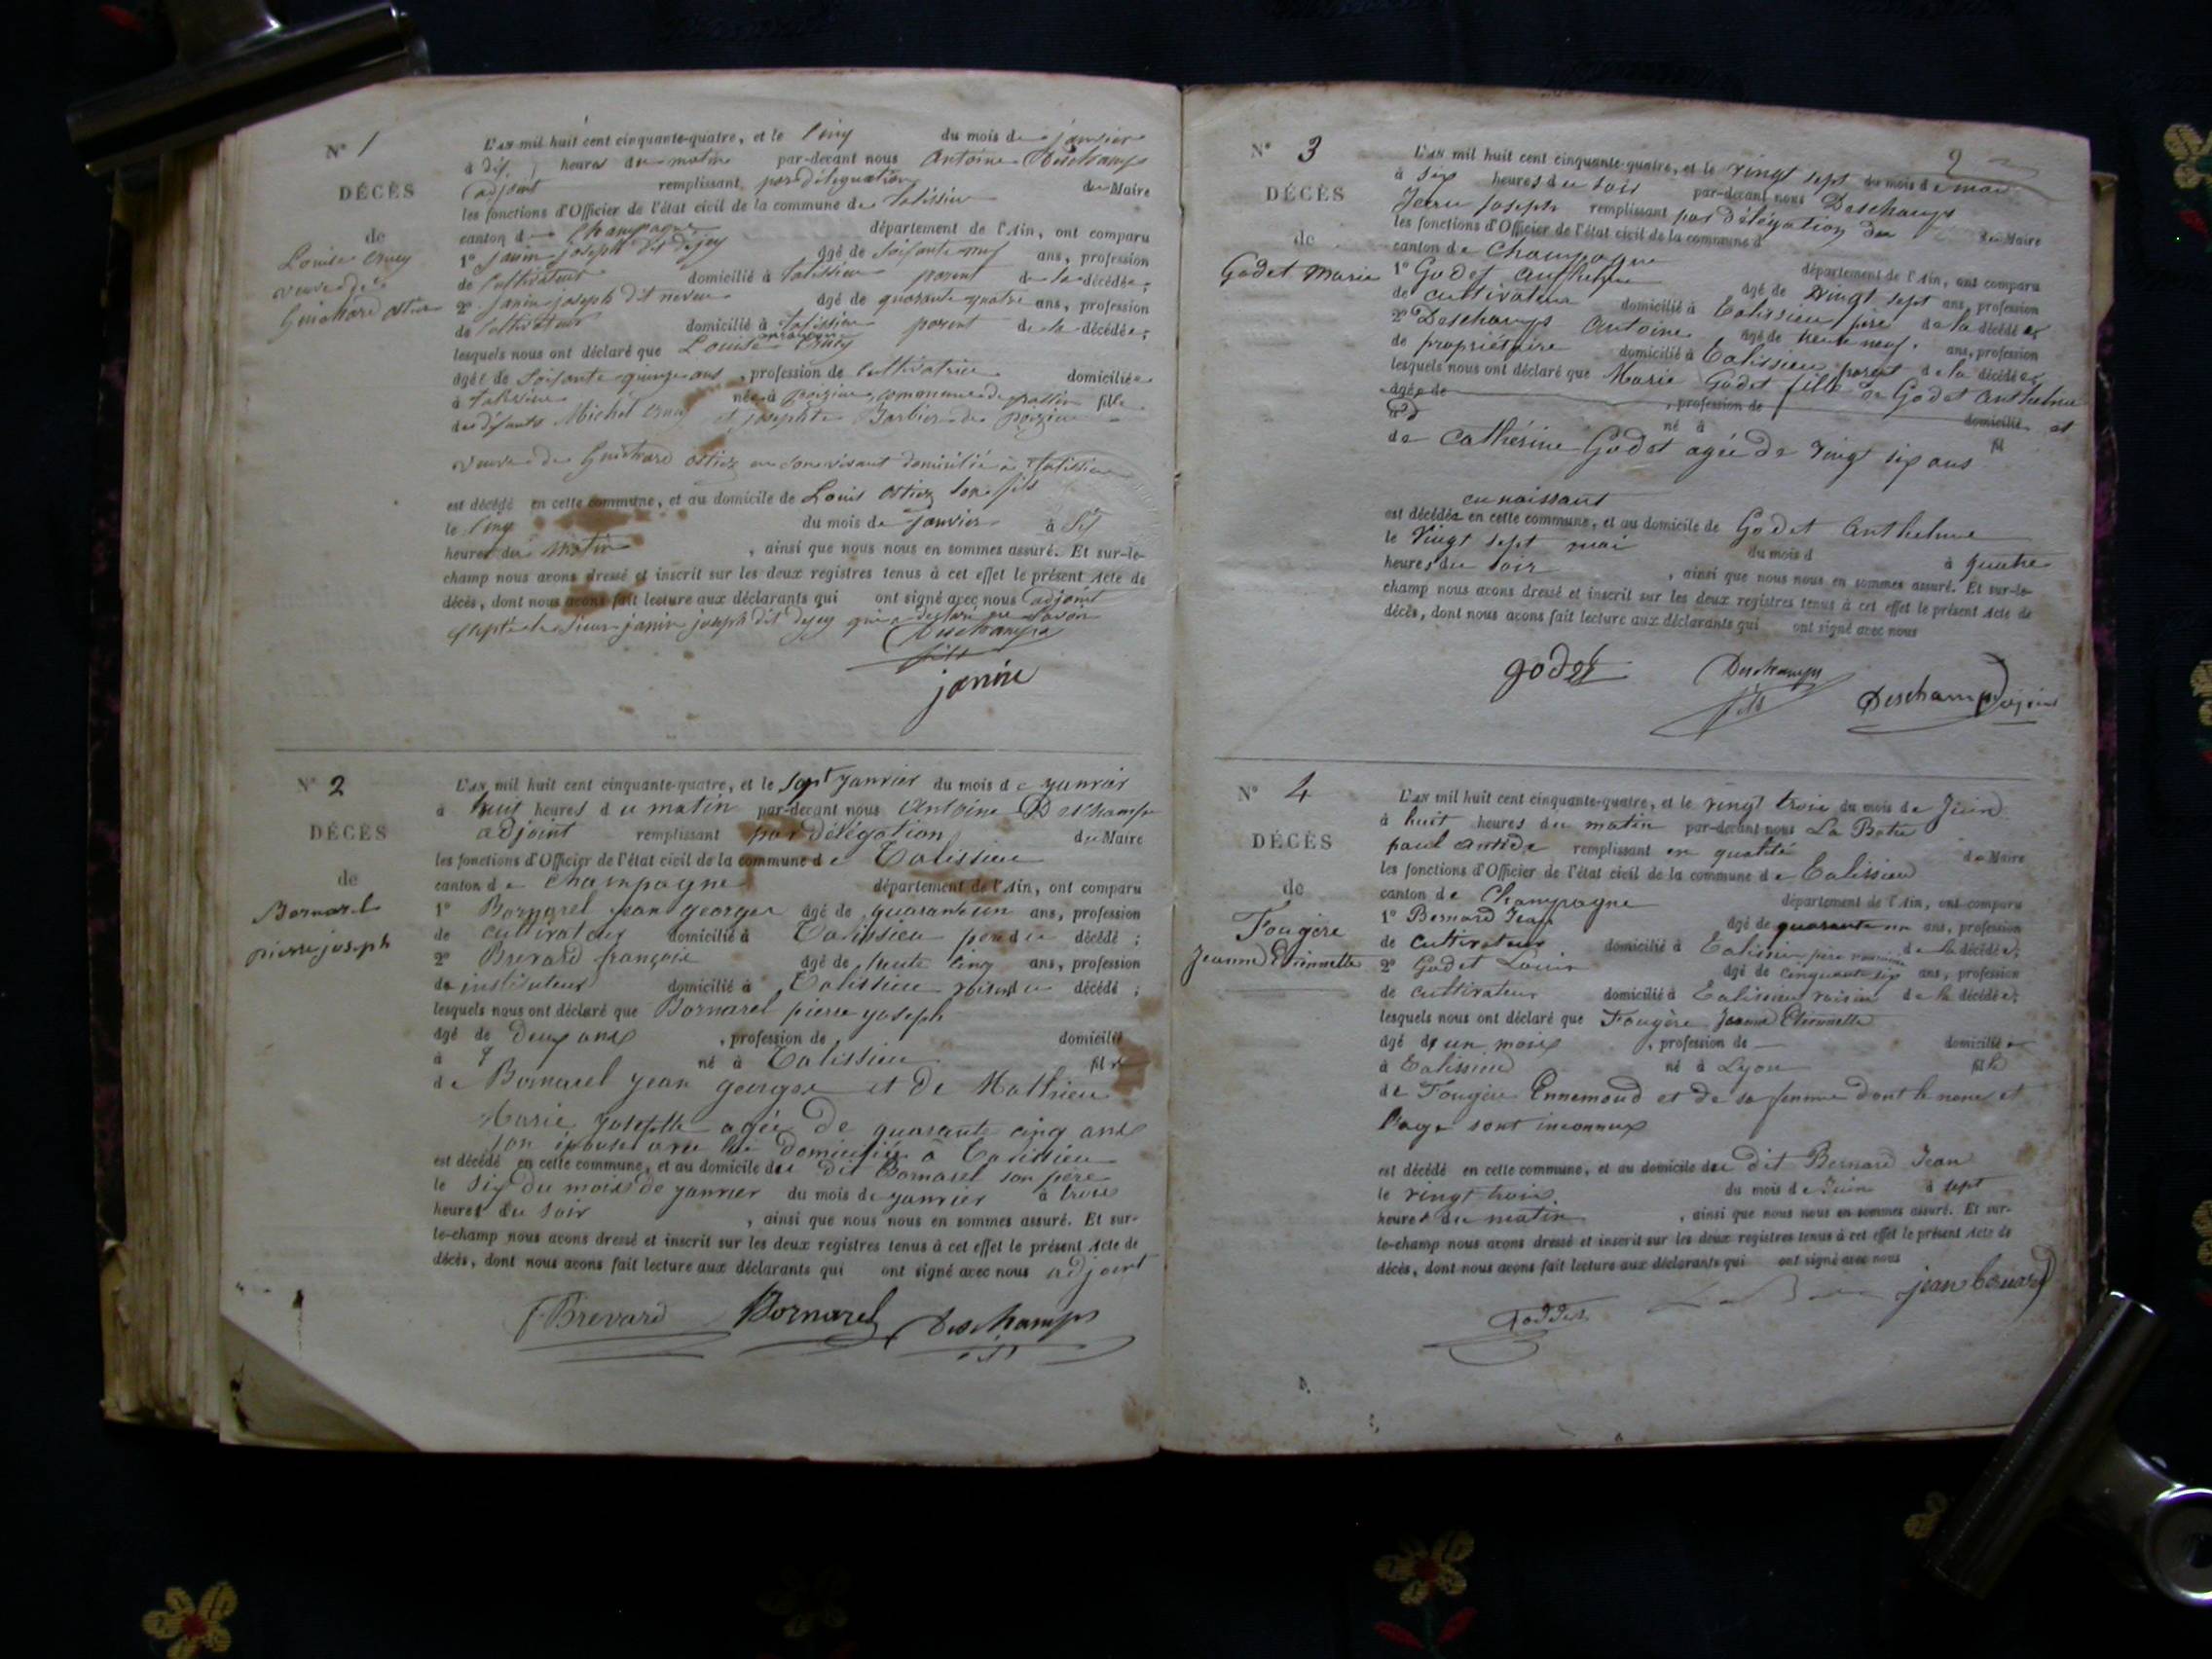 N° 1
DÉCÈS
de
Louise
veuve de
L'AN mil huit cent cinquante-quatre, et le cinq du mois de janvier
à dix heures du matin par-devant nous Antoine Deschamps
adjoint remplissant par délégation du Maire
les fonctions d'Officier de l'état civil de la commune de talissieu
canton de Champagne département de l'Ain, ont comparu
1° janin joseph dit dejey âgé de soixante neuf ans, profession
de Cultivateur domicilié à talissieu parent de la décédée;
2° janin joseph dit neveu âgé de quarante quatre ans, profession
de Cultivateur domicilié à talissieu parent de la décédée;
lesquels nous ont déclaré que Louise
âgée de Soixante quinze ans, profession de Cultivatrice domiciliée
à talissieu née à poizieu, commune de fille
des défunts Michel et josephte Barbier de poizieu
veuve de ostiez en son vivant domicilié à talissieu
est décédé en cette commune, et au domicile de Louis ostiez son fils
le cinq du mois de janvier à
heures du matin, ainsi que nous nous en sommes assuré. Et sur-le-
champ nous avons dressé et inscrit sur les deux registres tenus à cet effet le présent Acte de
décès, dont nous avons fait lecture aux déclarants qui ont signé avec nous adjoint
excepté le Sieur janin joseph dit dejey qui a déclaré ne savoir
Deschamps
fils
janin
N° 2
DÉCÈS
de
Bornarel
pierre joseph
L'AN mil huit cent cinquante-quatre, et le sept janvier du mois de janvier
à huit heures du matin par-devant nous Antoine Deschamps
adjoint remplissant par délégation du Maire
les fonctions d'Officier de l'état civil de la commune de Talissieu
canton de Champagne département de l'Ain, ont comparu
1° Bornarel jean george âgé de quarante un ans, profession
de cultivateur domicilié à Talissieu père du décédé;
2° Brevard françois âgé de trente cinq ans, profession
de instituteur domicilié à Talissieu voisin du décédé;
lesquels nous ont déclaré que Bornarel pierre joseph
âgé de deux ans, profession de domicilié
à né à Talissieu fils
de Bornarel jean george et de Mathieu
Marie josephte agée de quarante cinq ans
son épouse avec lui domiciliée à Talissieu
est décédé en cette commune, et au domicile du dit Bornarel son père
le six du mois de janvier du mois de janvier à trois
heures du soir, ainsi que nous nous en sommes assuré. Et sur-
le-champ nous avons dressé et inscrit sur les deux registres tenus à cet effet le présent Acte de
décès, dont nous avons fait lecture aux déclarants qui ont signé avec nous adjoint
f. Brevard Bornarel Deschamps
fils
2
N° 3
DÉCÈS
de
Godet Marie
L'AN mil huit cent cinquante-quatre, et le vingt sept du mois de mai
à six heures du soir par-devant nous Deschamps
Jean Joseph remplissant par délégation du du Maire
les fonctions d'Officier de l'état civil de la commune d
canton de Champagne département de l'Ain, ont comparu
1° Godet Anthelme âgé de vingt sept ans, profession
de cultivateur domicilié à Talissieu père de la décédée
2° Deschamps Antoine âgé de trente neuf ans, profession
de propriétaire domicilié à Talissieu parent de la décédée
lesquels nous ont déclaré que Marie Godet fille de Godet Anthelme
âgée de, profession de domicilié et
à né à fil
de Cathérine Godet agée de vingt six ans
en naissant
est décédée en cette commune, et au domicile de Godet Anthelme
le vingt sept mai du mois d à quatre
heures du soir, ainsi que nous nous en sommes assuré. Et sur-le-
champ nous avons dressé et inscrit sur les deux registres tenus à cet effet le présent Acte de
décès, dont nous avons fait lecture aux déclarants qui ont signé avec nous
godet Deschamps
fils Deschamps adjoint
N° 4
DÉCÈS
de
Fougère
Jeanne Etiennette
L'AN mil huit cent cinquante-quatre, et le vingt trois du mois de Juin
à huit heures du matin par-devant nous La Batie
paul remplissant en qualité de Maire
les fonctions d'Officier de l'état civil de la commune de Talissieu
canton de Champagne département de l'Ain, ont comparu
1° Bernard Jean âgé de quarante un ans, profession
de cultivateur domicilié à Talissieu père nourricier de la décédée;
2° Godet Louis âgé de cinquante six ans, profession
de cultivateur domicilié à Talissieu voisin de la décédée;
lesquels nous ont déclaré que Fougère Jeanne Etiennette
âgé d'un mois, profession de domiciliée
à Talissieu né à Lyon fille
de Fougère Ennemond et de sa femme dont le nom et
l'age sont inconnus
est décédé en cette commune, et au domicile du dit Bernard Jean
le vingt trois du mois de Juin à sept
heures du matin, ainsi que nous nous en sommes assuré. Et sur-
le-champ nous avons dressé et inscrit sur les deux registres tenus à cet effet le présent Acte de
décès, dont nous avons fait lecture aux déclarants qui ont signé avec nous
jean bernard